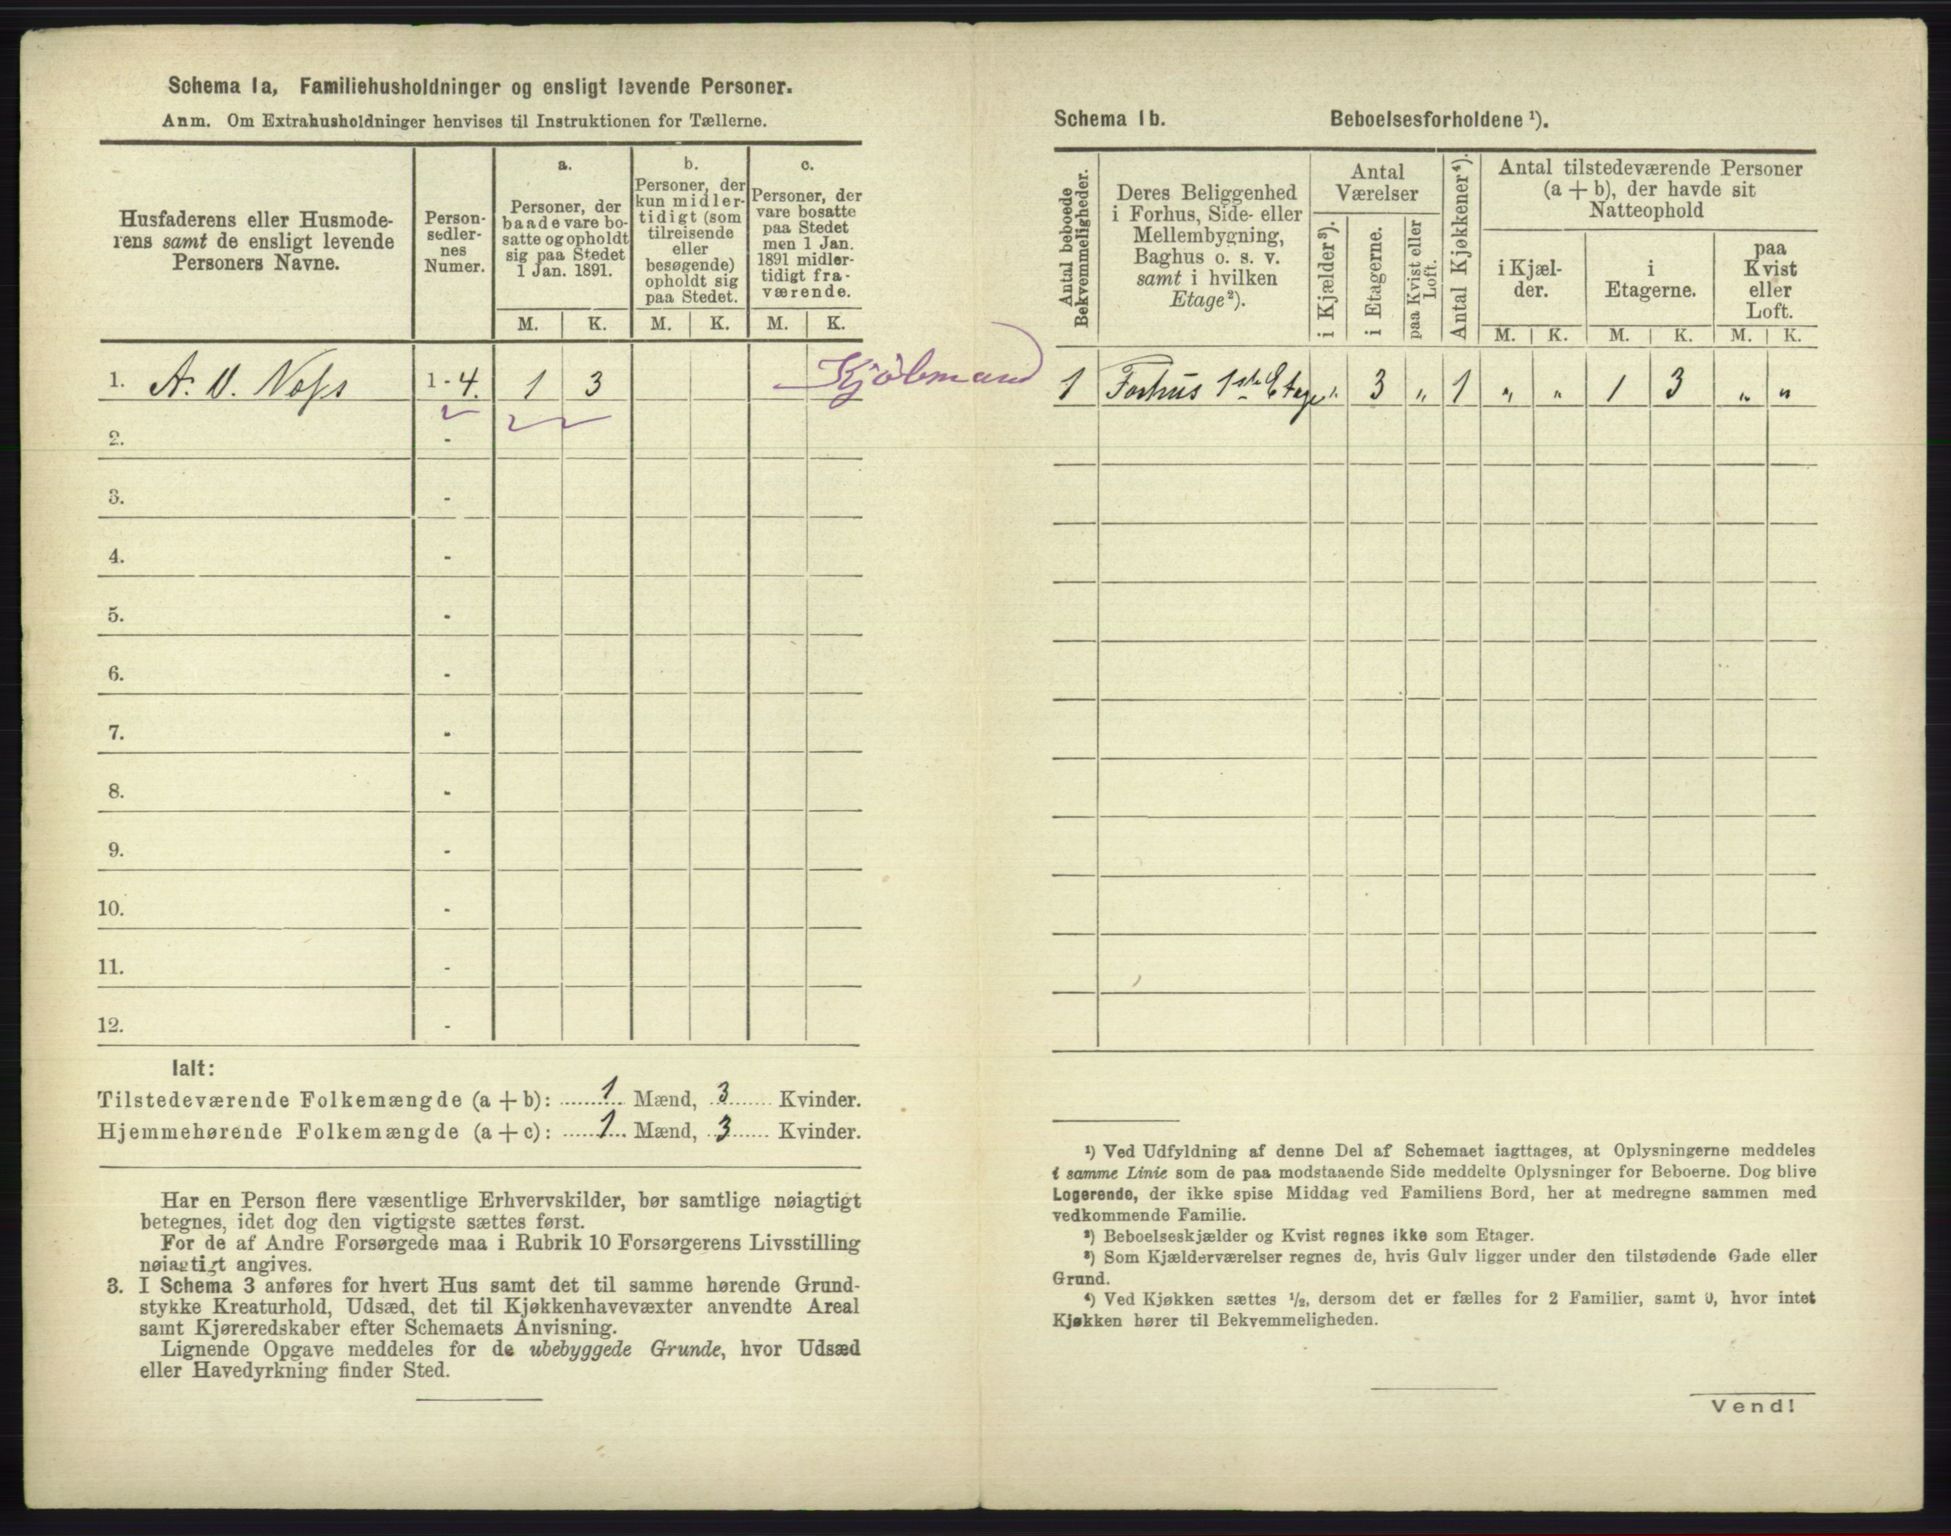 Schema 1a, Familiehusholdninger og ensligt levende Personer.
Anm. Om Extrahusholdninger henvises til Instruktionen for Tællerne.
Husfaderens eller Husmode-
rens samt de ensligt levende
Personers Navne.
Person-
sedler-
nes
Numer.
a.
Personer, der
baade vare bo-
satte og opholdt
sig paa Stedet
1 Jan. 1891.
M. K.
b.
Personer, der
kun midler-
tidigt (som
tilreisende
eller
besøgende)
opholdt sig
paa Stedet.
M. K.
c.
Personer, der
vare bosatte
paa Stedet
men 1 Jan.
1891 midler-
tidigt fra-
værende.
M. K.
1. A. V. Voss 1 - 4. 1 3 Kjøbmand
2. -
3. -
4. -
5. -
6. -
7. -
8. -
9. -
10. -
11. -
12. -
Ialt:
Tilstedeværende Folkemængde (a + b): 1 Mænd, 3 Kvinder.
Hjemmehørende Folkemængde (a + c): 1 Mænd, 3 Kvinder.
Har en Person flere væsentlige Erhvervskilder, bør samtlige nøiagtigt
betegnes, idet dog den vigtigste sættes først.
For de af Andre Forsørgede maa i Rubrik 10 Forsørgerens Livsstilling
nøiagtigt angives.
3. I Schema 3 anføres for hvert Hus samt det til samme hørende Grund-
stykke Kreaturhold, Udsæd, det til Kjøkkenhavevæxter anvendte Areal
samt Kjøreredskaber efter Schemaets Anvisning.
Lignende Opgave meddeles for de ubebyggede Grunde, hvor Udsæd
eller Havedyrkning finder Sted.
Schema 1b. Beboelsesforholdene ¹).
Antal beboede
Bekvemmeligheder.
Deres Beliggenhed
i Forhus, Side- eller
Mellembygning,
Baghus o. s. v.
samt i hvilken
Etage²).
Antal
Værelser
i Kjælder³).
i Etagerne.
paa Kvist eller
Loft.
Antal Kjøkkener⁴).
Antal tilstedeværende Personer
(a + b), der havde sit
Natteophold
i Kjæl-
der.
M. K.
i
Etagerne.
M. K.
paa
Kvist
eller
Loft.
M. K.
1 Forhus 1ste Etage " 3 " 1 " " 1 3 " "
¹) Ved Udfyldning af denne Del af Schemaet iagttages, at Oplysningerne meddeles
i samme Linie som de paa modstaaende Side meddelte Oplysninger for Beboerne. Dog blive
Logerende, der ikke spise Middag ved Familiens Bord, her at medregne sammen med
vedkommende Familie.
²) Beboelseskjælder og Kvist regnes ikke som Etager.
³) Som Kjælderværelser regnes de, hvis Gulv ligger under den tilstødende Gade eller
Grund.
⁴) Ved Kjøkken sættes ½, dersom det er fælles for 2 Familier, samt 0, hvor intet
Kjøkken hører til Bekvemmeligheden.
Vend!